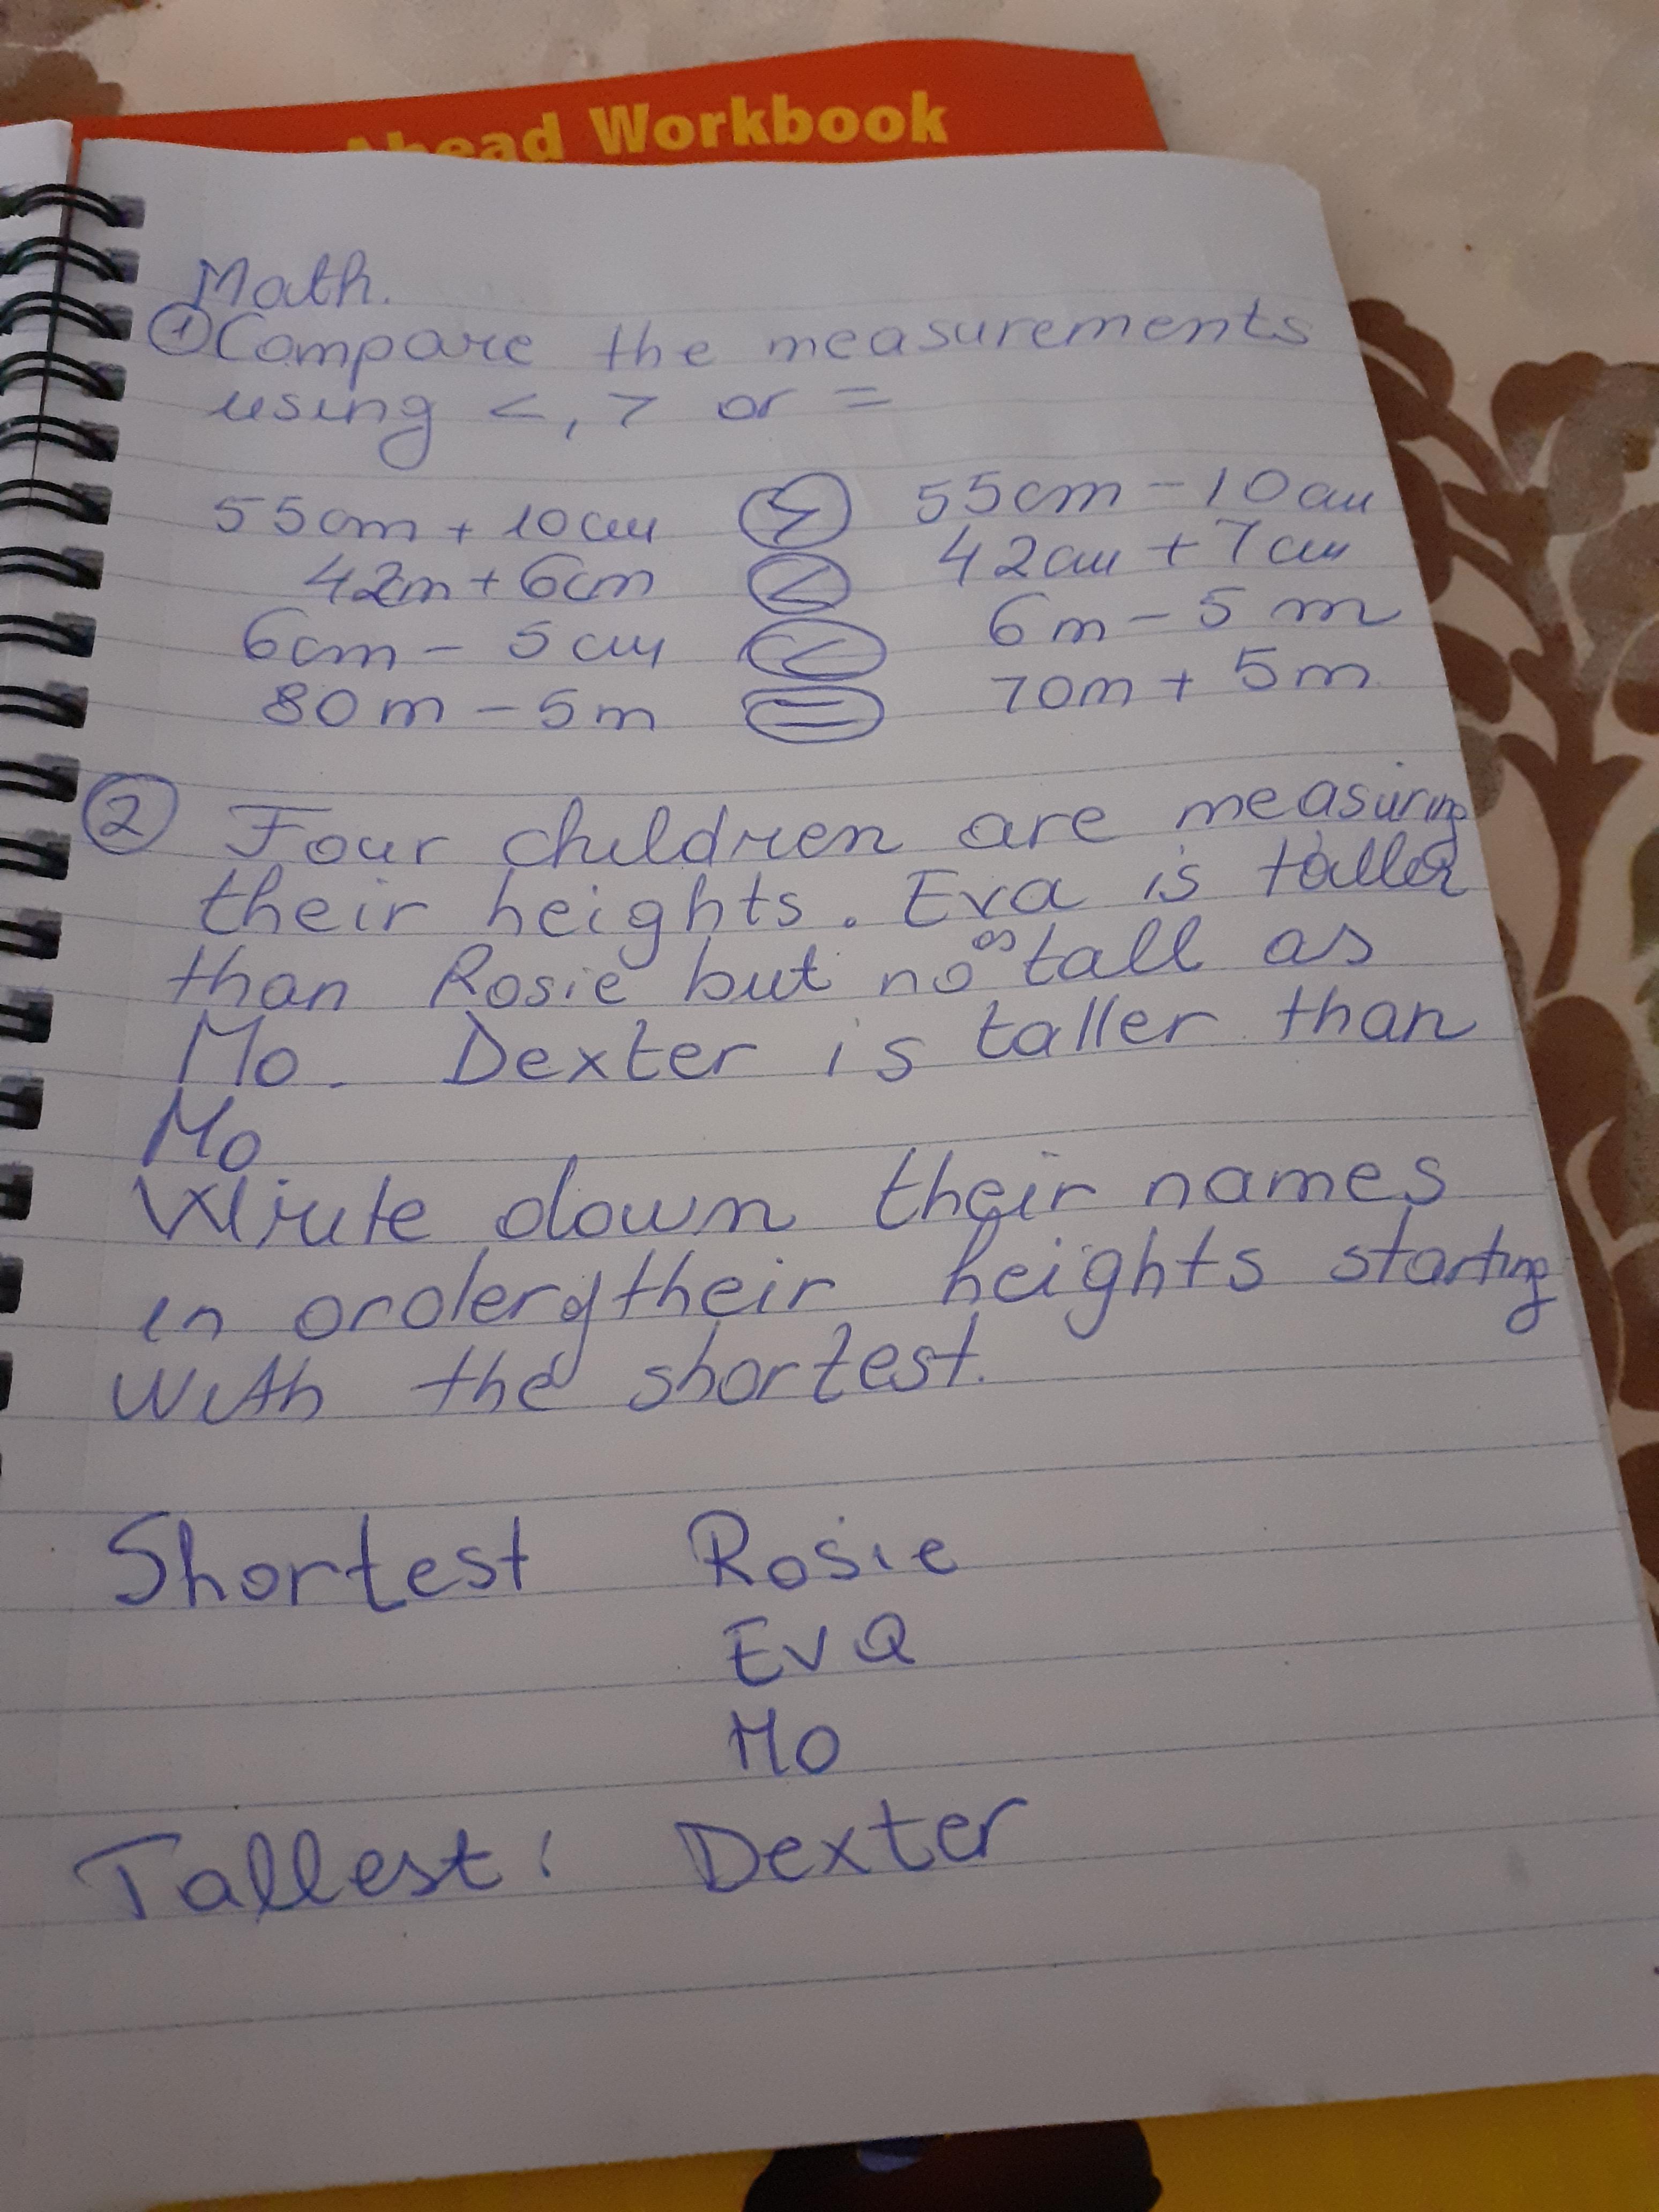 Ahead Workbook
Math.
① Compare the measurements
using <, > or =
55cm + 10cm > 55cm - 10cm
42m + 6cm < 42cm + 7cm
6cm - 5cm < 6m - 5m
80m - 5m = 70m + 5m
② Four children are measuring
their heights. Eva is taller
than Rosie but no as tall as
Mo. Dexter is taller than
Mo
Write down their names
in order of their heights starting
with the shortest.
Shortest Rosie
Eva
Mo
Tallest: Dexter